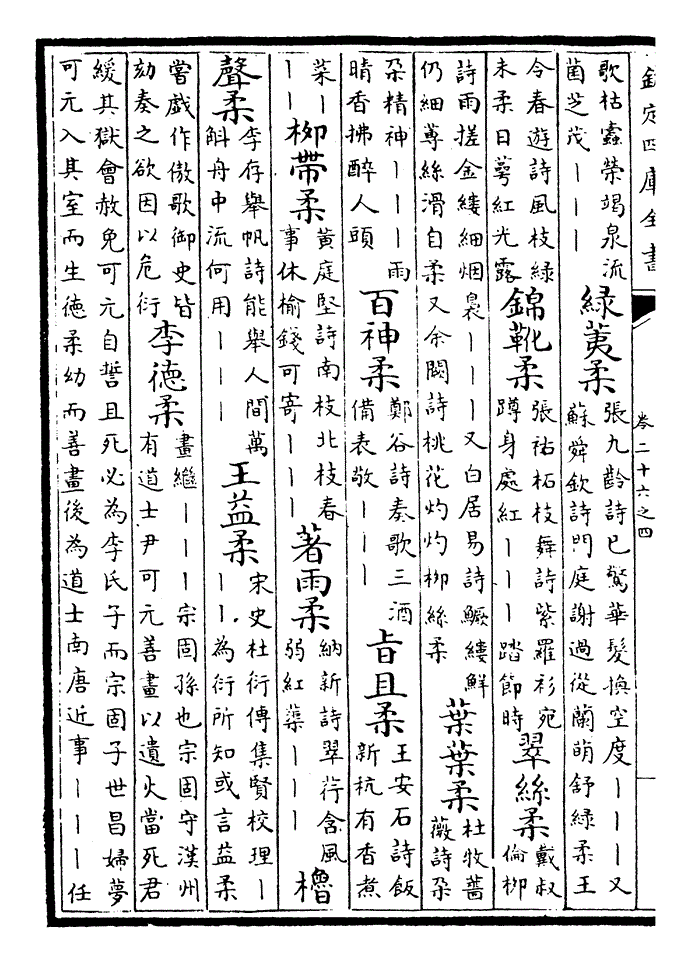 欽定四庫全書
卷二十六之四
歌枯蠹榮竭泉流
菌芝茂｜｜｜
綠荑柔
張九齡詩已驚華髮換空度｜｜｜又
蘇舜欽詩門庭謝過從蘭萌舒綠柔王
令春遊詩風枝綠
未柔日萼紅光露
錦靴柔
張祐柘枝舞詩紫羅衫宛
蹲身處紅｜｜｜踏節時
翠絲柔
戴叔
倫柳
詩雨搓金縷細烟裊｜｜｜又白居易詩鱖縷鮮
仍細蓴絲滑自柔又余闕詩桃花灼灼柳絲柔
葉葉柔
杜牧薔
薇詩朶
朶精神｜｜｜雨
晴香拂醉人頭
百神柔
鄭谷詩奏歌三酒
備表敬｜｜｜
旨且柔
王安石詩飯
新秔有香煮
菜｜
｜｜
柳帶柔
黃庭堅詩南枝北枝春
事休榆錢可寄｜｜｜
著雨柔
納新詩翠荇含風
弱紅蕖｜｜｜
櫓
聲柔
李存舉帆詩能舉人間萬
斛舟中流何用｜｜｜
王益柔
宋史杜衍傳集賢校理｜
｜｜為衍所知或言益柔
嘗戲作傲歌御史皆
劾奏之欲因以危衍
李德柔
畫繼｜｜｜宗固孫也宗固守漢州
有道士尹可元善畫以遺火當死君
緩其獄會赦免可元自誓且死必為李氏子而宗固子世昌婦夢
可元入其室而生德柔幼而善畫後為道士南唐近事｜｜｜任